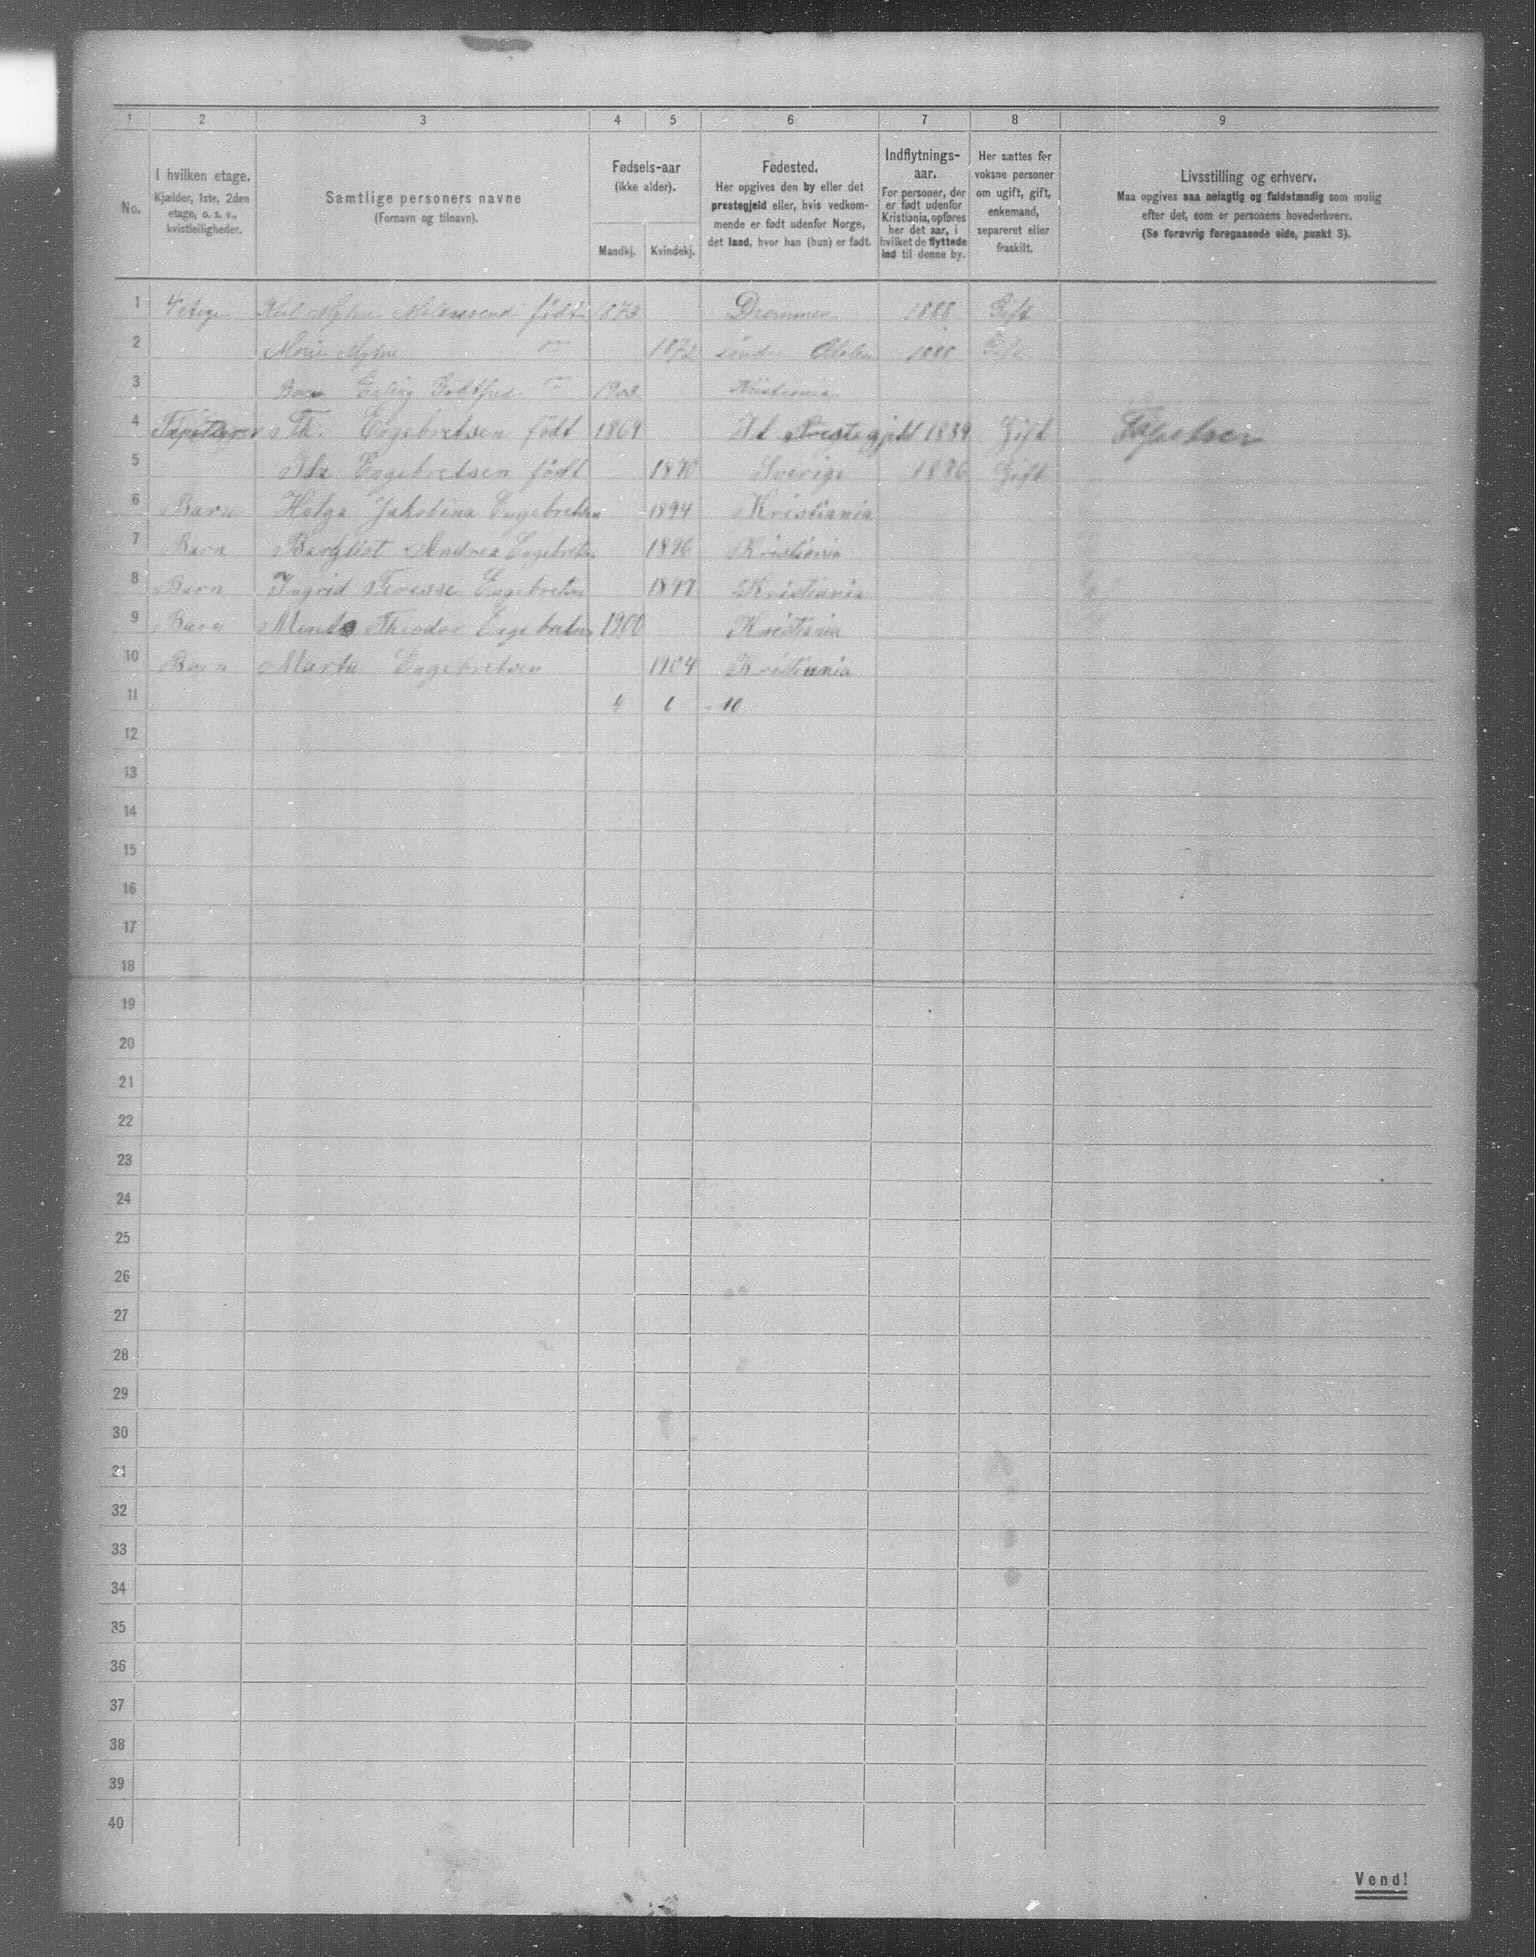 1 2 3 4 5 6 7 8 9
No.
I hvilken etage.
Kjælder, 1ste, 2den
etage, o. s. v.,
kvistleiligheder.
Samtlige personers navne
(Fornavn og tilnavn).
Fødsels-aar
(ikke alder).
Mandkj. Kvindekj.
Fødested.
Her opgives den by eller det
prestegjeld eller, hvis vedkom-
mende er født udenfor Norge,
det land, hvor han (hun) er født.
Indflytnings-
aar.
For personer, der
er født udenfor
Kristiania, opføres
her det aar, i
hvilket de flyttede
ind til denne by.
Her sættes for
voksne personer
om ugift, gift,
enkemand,
separeret eller
fraskilt.
Livsstilling og erhverv.
Maa opgives saa nøiagtig og fuldstændig som mulig
efter det, som er personens hovederhverv.
(Se forøvrig foregaaende side, punkt 3).
1 født 1873 Drammen 1888 Gift
2 Marie 1872 søndre 1888 Gift
3 Barn Erling Godtfred 1903 Kristiania
4 Th. Engebretsen født 1864 Prestegjeld 1889 Gift Tapetserer
5 Ida Engebretsen født 1870 Sverige 1886 Gift
6 Barn Helga Jakobina Engebretsen 1894 Kristiania
7 Barn Andrea Engebretsen 1896 Kristiania
8 Barn Ingrid Teresse Engebretsen 1897 Kristiania
9 Barn Theodor Engebretsen 1900 Kristiania
10 Barn Marta Engebretsen 1904 Kristiania
11 4 6 10
12
13
14
15
16
17
18
19
20
21
22
23
24
25
26
27
28
29
30
31
32
33
34
35
36
37
38
39
40
Vend!